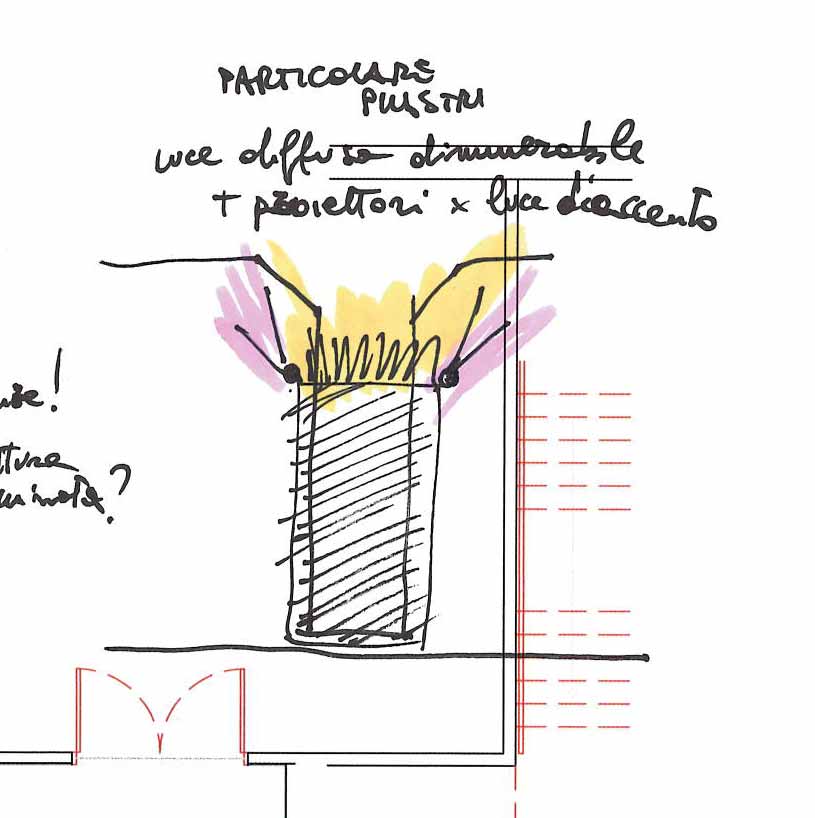 PARTICOLARE
PILASTRI
luce diffusa dimmerabile
+ proiettori x luce d'accento